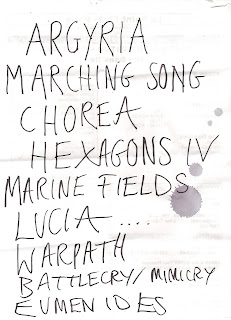 ARGYRIA
MARCHING SONG
CHOREA
HEXAGONS IV
MARINE FIELDS
LUCIA ....
WARPATH
BATTLECRY/MIMICRY
EUMENIDES